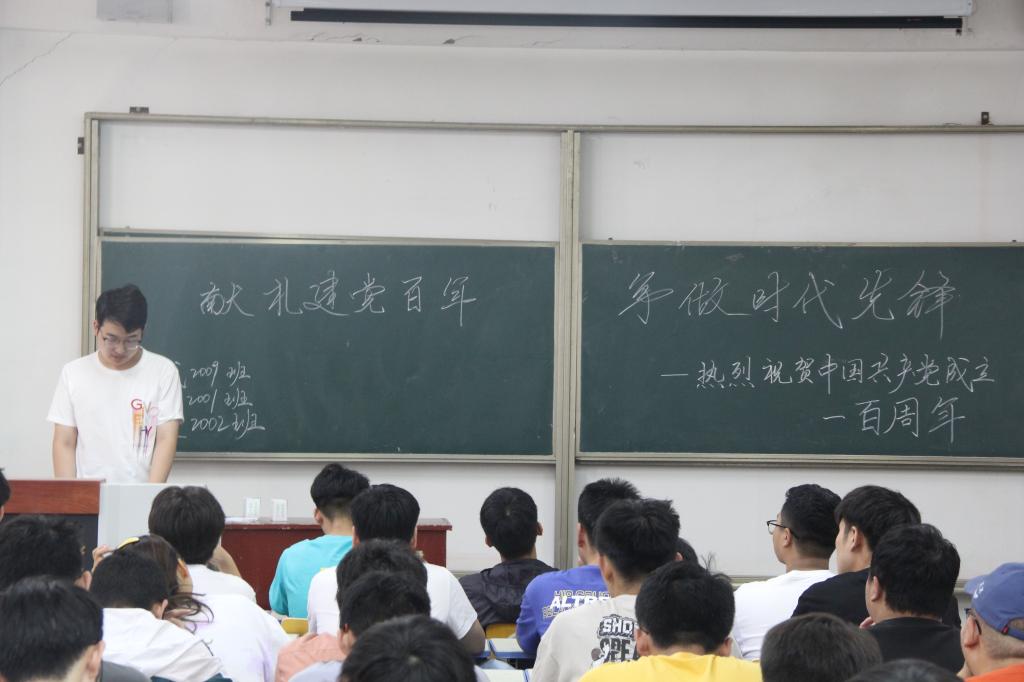 献礼建党百年
2009班
2001班
2002班
争做时代先锋
—热烈祝贺中国共产党成立
一百周年
ALTR
SHO